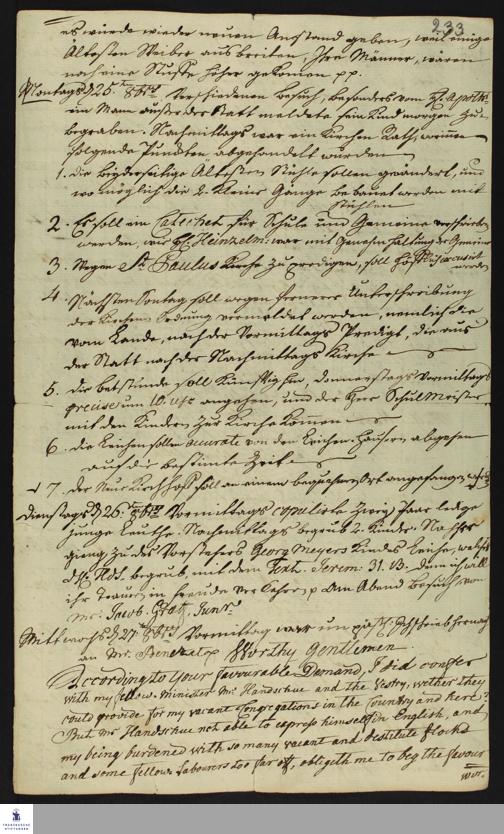 233
es würde wieder neuen Anstand geben, weil einige
Ältesten Weiber ausbreiten, Ihre Männer, waren
noch eine Stuffe höher gekomen pp.
Montags d 25. 8br. Verschiedenen besuch, besonders vom H.
ein Mann außer der Statt meldete sein Kind morgen zu
begraben. Nachmittags war ein Kirchen Rath, worinnen
folgende Puncten abgehandelt wurden
1. die beyderseitige Ältesten Stühle sollen geändert, und
wo möglich die 2. kleine Gänge bebauet werden mit
Stühlen
2. Es soll ein Catechet für Schule und Gemeine verschrieben
werden, wie H. Heinzelm. war mit Genehmhaltung der Gemeine
3. Wegen St. Paulus Kirche zu predigen, soll excusirt
werden
4. Nächsten Sontag soll wegen fernerer Unterschreibung
der Kirchen Ordnung vermeldet werden, nemlich die
vom Lande, nach der Vormittags Predigt, die aus
der Statt nach der Nachmittags Kirche
5. die betstunde soll Künfftig hin, donnerstags Vormittags
precise um 10. uhr angehen, und der Herr Schulmeister
mit den Kindern zur Kirche kommen
6. die Leichen sollen accurate von den Leichen Häusern abgehen
auf die bestimte Zeit
7. der Neue Kirchhoff soll an einem bequehmen Ort angefangen werden
Dienstags d 26. 8br Vormittags copulirte zwey paar ledige
junge Leuthe. Nachmittags begrub 2. Kinder. Nachher
gieng zu des Vorstehers Georg Meyers Kindes Leiche, welches
H. Hds. begrub mit dem Text. Jerem: 31. 13. Denn ich will
ihr Trauren in freude verkehren p den Abend besuch von
Mr. Jacob Graff, Junr.
Mittwochs d 27. 8br Vormittag war schrieb hernach
an Mr. Worthy Gentlemen
According to Your favourable Demand, I did confer
with my fellow-Minister Mr Handschue and the Vestry, wether they
could provide for my vacant Congregations in the Country and here?
But Mr Handschue not able to express himself in English, and
my being burdened with so many vacant and destitute flocks
and some fellow Labourers too far off, obligeth me to beg the favour
FRANCKESCHE STIFTUNGEN